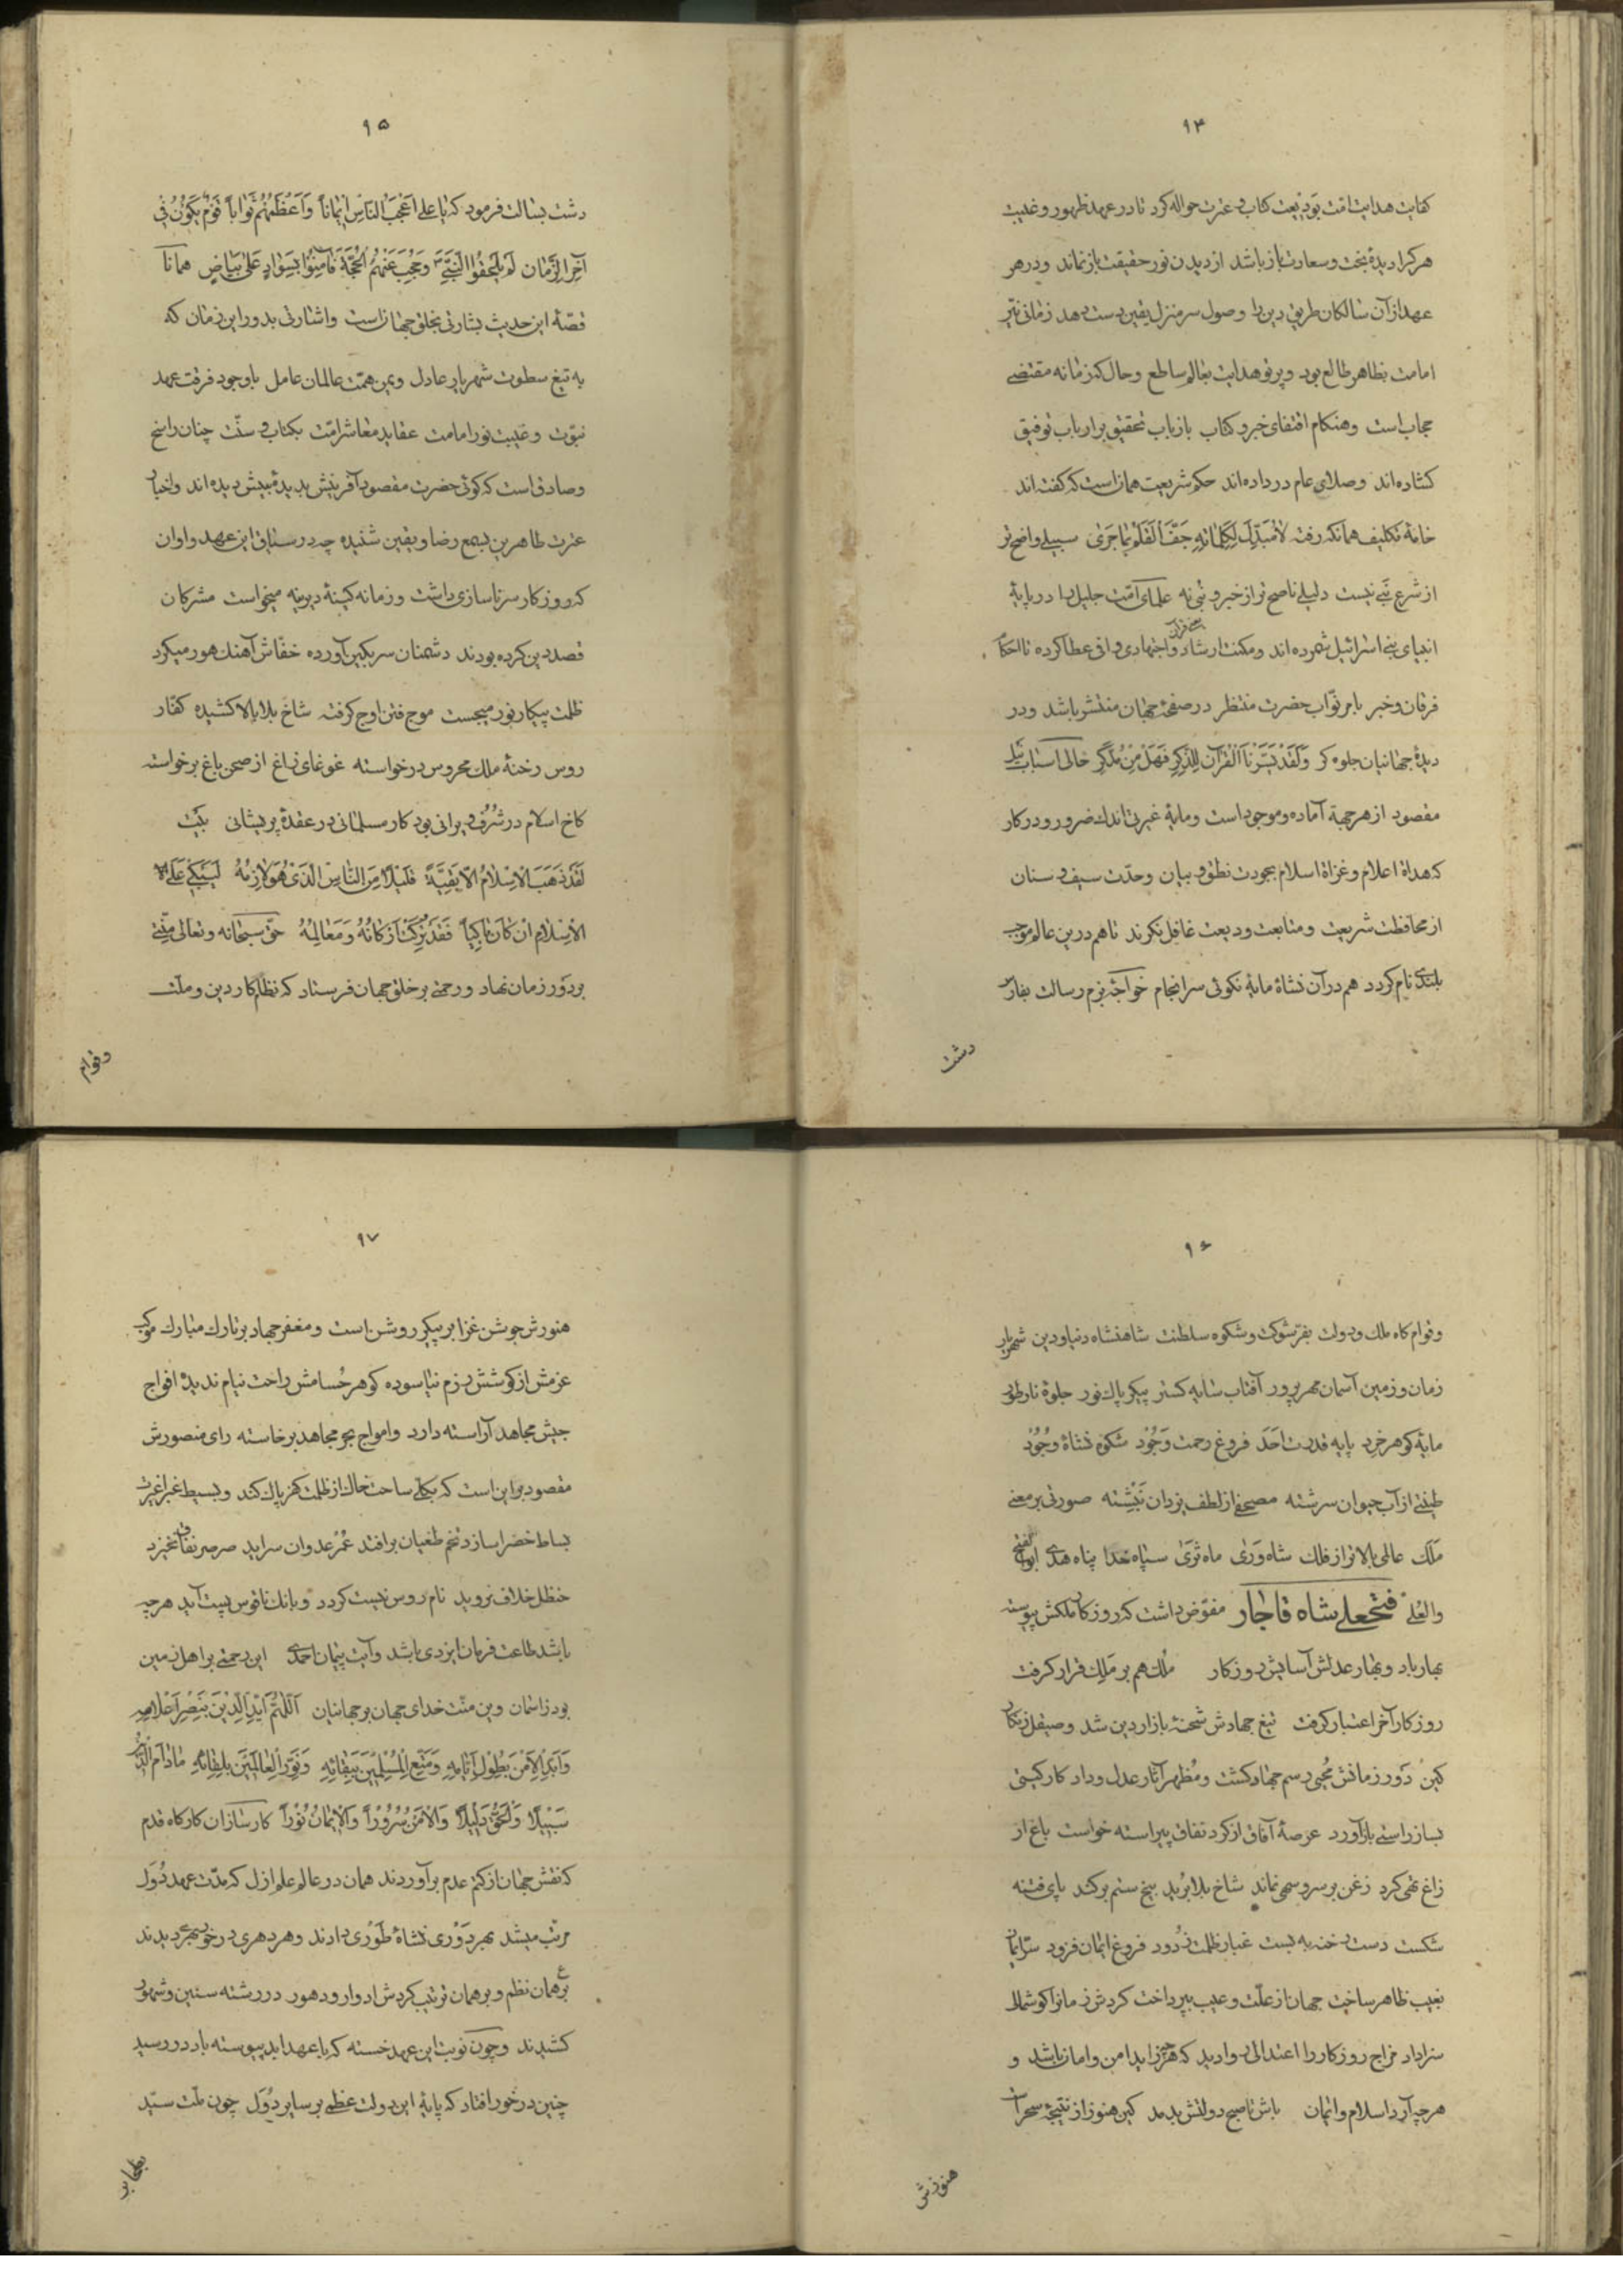 ۹۴
کفایت هدایت امت بودیعت کتاب و عترت حواله کرد تا در عهد ظهور و غیبت
هر کرا دیدهٔ بخت و سعادت باز باشد از دیدن نور حقیقت باز نماند و در هر
عهد از آن سالکان طریق دین را وصول سر منزل یقین دست دهد زمانی نیّر
امامت بظاهر طالع بود و پرتو هدایت بعالم ساطع و حال که زمانه مقتضی
حجاب است و هنکام اقتفای خبر و کتاب باز باب تحقیق بر ارباب توفیق
کشاده اند و صلای عام در داده اند حکم شریعت همان است که کفته اند
خامهٔ تکلیف همانکه رفت لا مُبَدِّلَ لِکَلِماتِهِ جَفَّ القَلَمُ بِما جَرَی سبیلی واضح تر
از شرع نبی نیست دلیلی ناصح تر از خبر و نبی نه علمای امّت جلیل را در پایهٔ
انبیای بنی اسرائیل شمرده اند و مکنت ارشاد و اجتهادی وافی عطا کرده تا احکام
فرقان و خبر بامر نوّاب حضرت منتظر در صفحهٔ جهان منتشر باشد و در
دیدهٔ جهانیان جلوه کر وَلَقَدْ یَسَّرْنَا الْقُرْآنَ لِلذِّکْرِ فَهَلْ مِنْ مُدَّکِرٍ حالی اسباب نیل
مقصود از هر جهة آماده و موجود است و مایهٔ غیرتی اندک ضرور و درکار
که هداة اعلام و غزاة اسلام بجودت نطق و بیان و حدّت سیف و سنان
از محافظت شریعت و متابعت ودیعت غافل نکردند تا هم درین عالم موجب
بلندی نام کردد هم در آن نشاة مایهٔ نکوئی سرانجام خواجهٔ بزم رسالت بفارس
دشت
۹۵
دشت بسالت فرمود که یا علی اَعْجَبُ النّاسِ ایماناً وَ اَعْظَمُهُمْ ثَواباً قَوْمٌ یَکُونُونَ فِی
آخِرِ الزَّمانِ لَمْ یَلْحَقُوا النَّبِیَّ وَ حُجِبَ عَنْهُمُ الْحُجَّةُ فَآمَنُوا بِسَوادٍ عَلی بَیاضٍ همانا
قصّهٔ این حدیث بشارتی بخلق جهان است و اشارتی بدور این زمان که
به تیغ سطوت شهریار عادل و یمن همّت عالمان عامل باوجود فرقت عهد
نبوّت و غیبت نور امامت عقاید معاشر امّت بکتاب و سنّت چنان راسخ
و صادق است که کوئی حضرت مقصود آفرینش بدیدهٔ بینش دیده اند و اخبار
عترت طاهرین بسمع رضا و یقین شنیده چه در سباق این عهد و اوان
که روزکار سر ناسازی داشت و زمانه کینهٔ دیرینه میخواست مشرکان
قصد دین کرده بودند دشمنان سر بکین آورده خفّاش آهنک هور میکرد
ظلمت پیکار نور میجست موج فتن اوج کرفته شاخ بلا بالا کشیده کفّار
روس رخنهٔ ملک محروس درخواسته غوغای زاغ از صحن باغ برخواسته
کاخ اسلام در شُرُف ویرانی بود کار مسلمانی در عقدهٔ پریشانی بیت
لَقَدْ ذَهَبَ الاِسْلامُ اِلاّ بَقِیَّةً قَلیلاً مِنَ النّاسِ الَّذی هُوَ لازِمُهُ لِیَبْکِ عَلَی
الاِسْلامِ اِنْ کانَ باکِیاً فَقَدْ تُرِکَتْ اَرْکانُهُ وَ مَعالِمُهُ حق سبحانه و تعالی منّتی
بر دَور زمان نهاد و رحمتی بر خلق جهان فرستاد که نظام کار دین و ملّت
وقوام
۹۶
وقوام کاه ملک و دولت بفرّ شوکت و شکوه سلطنت شاهنشاه دنیا و دین شهریار
زمان و زمین آسمان مهر پرور آفتاب سایه کستر پیکر پاک نور جلوهٔ نار طور
مایهٔ کوهر خِرد پایه قدرت اَحَد فروغ رحمت وَجُوْد شکوه نشاة وُجُوْد
طینتی از آب حیوان سرشته مصحفی از لطف یزدان نبشته صورتی بر معنی
مَلَک عالی بالاتر از فلک شاه وَرَی ماه ثَرَی سپاه خدا پناه هدی ابوالفتح
والعُلی فتحعلی شاه قاجار مفوّض داشت که روزکار ملکش پیوسته
بهار باد و بهار عدلش آسایش روزکار مُلک هم بر مَلِک قرار کرفت
روزکار آخر اعتبار کرفت تیغ جهادش شحنهٔ بازار دین شد و صیقل زنکار
کین دَور زمانش مُحیی رسم جهاد کشت و مُظهر آثار عدل و داد کار کیتی
بساز راستی بازآورد عرصهٔ آفاق از کرد نفاق پیراسته خواست باغ از
زاغ تهی کرد زغن بر سرو سهی نماند شاخ بلا ببُرید بیخ ستم برکند پای فتنه
شکست دست رخنه به بست غبار ظلمت زدود فروغ ایمان فزود ستر ایمان
بغیب ظاهر ساخت جهان از علّت و عیب بپرداخت کردش زمانرا کوشمال
سزا داد مزاج روزکار را اعتدالی روا دید که هرچه زاید امن و امان باشد و
هرچه آرد اسلام و ایمان باش تا صبح دولتش بدمد کین هنوز از نتیجهٔ سحر است
هنوزش
۹۷
هنوزش جوشن غزا بر پیکر روشن است و مغفر جهاد بر تارک مبارک موکب
عزمش از کوشش رزم نیاسوده کوهر حُسامش راحت نیام ندیده افواج
جیش مجاهد آراسته دارد و امواج بحر مجاهد برخاسته رای منصورش
مقصور بر این است که یکباره ساحت خاک از ظلمت کفر پاک کند و بسیط غبرا غیرت
بساط خضرا سازد تخم طغیان برافتد عُمر عدوان سراید صرصر نفاق نخیزد
حنظل خلاف نروید نام روس نیست کردد و بانک ناقوس پست آید هرچه
باشد طاعت فرمان ایزدی باشد و آیت پیمان احمدی این رحمتی بر اهل زمین
بود ز اسمان وین منّت خدای جهان بر جهانیان اَللّهُمَّ اَیِّدِ الدّینَ بِنَصْرِ اَعْلامِهِ
وَ اَبِّدِ الاَمْنَ بِطُولِ اَیّامِهِ وَ مَتِّعِ الْمُسْلِمینَ بِبَقائِهِ وَ نَوِّرِ الْعالَمینَ بِلِقائِهِ مادام
سَبیلاً وَ لِلْحَقِّ دَلیلاً وَ الاَمْنُ سُرُوْراً وَ الایمانُ نُوْراً کارسازان کارکاه قدم
که نقش جهان از کتم عدم برآوردند همان در عالم علم ازل که مدّت عهد دُوَل
مرتّب میشد بهر دَوْری نشاة طَوری دادند و هر دهری درخور بهری دیدند
بر همان نظم و بر همان ترتیب کردش ادوار و دهور در رشته سنین و شهور
کشیدند و چون نوبت این عهد خجسته که با عهد ابد پیوسته باد در رسید
چنین درخور افتاد که پایهٔ این دولت عظمی بر سایر دُوَل چون ملّت سیّد
بطحا بر